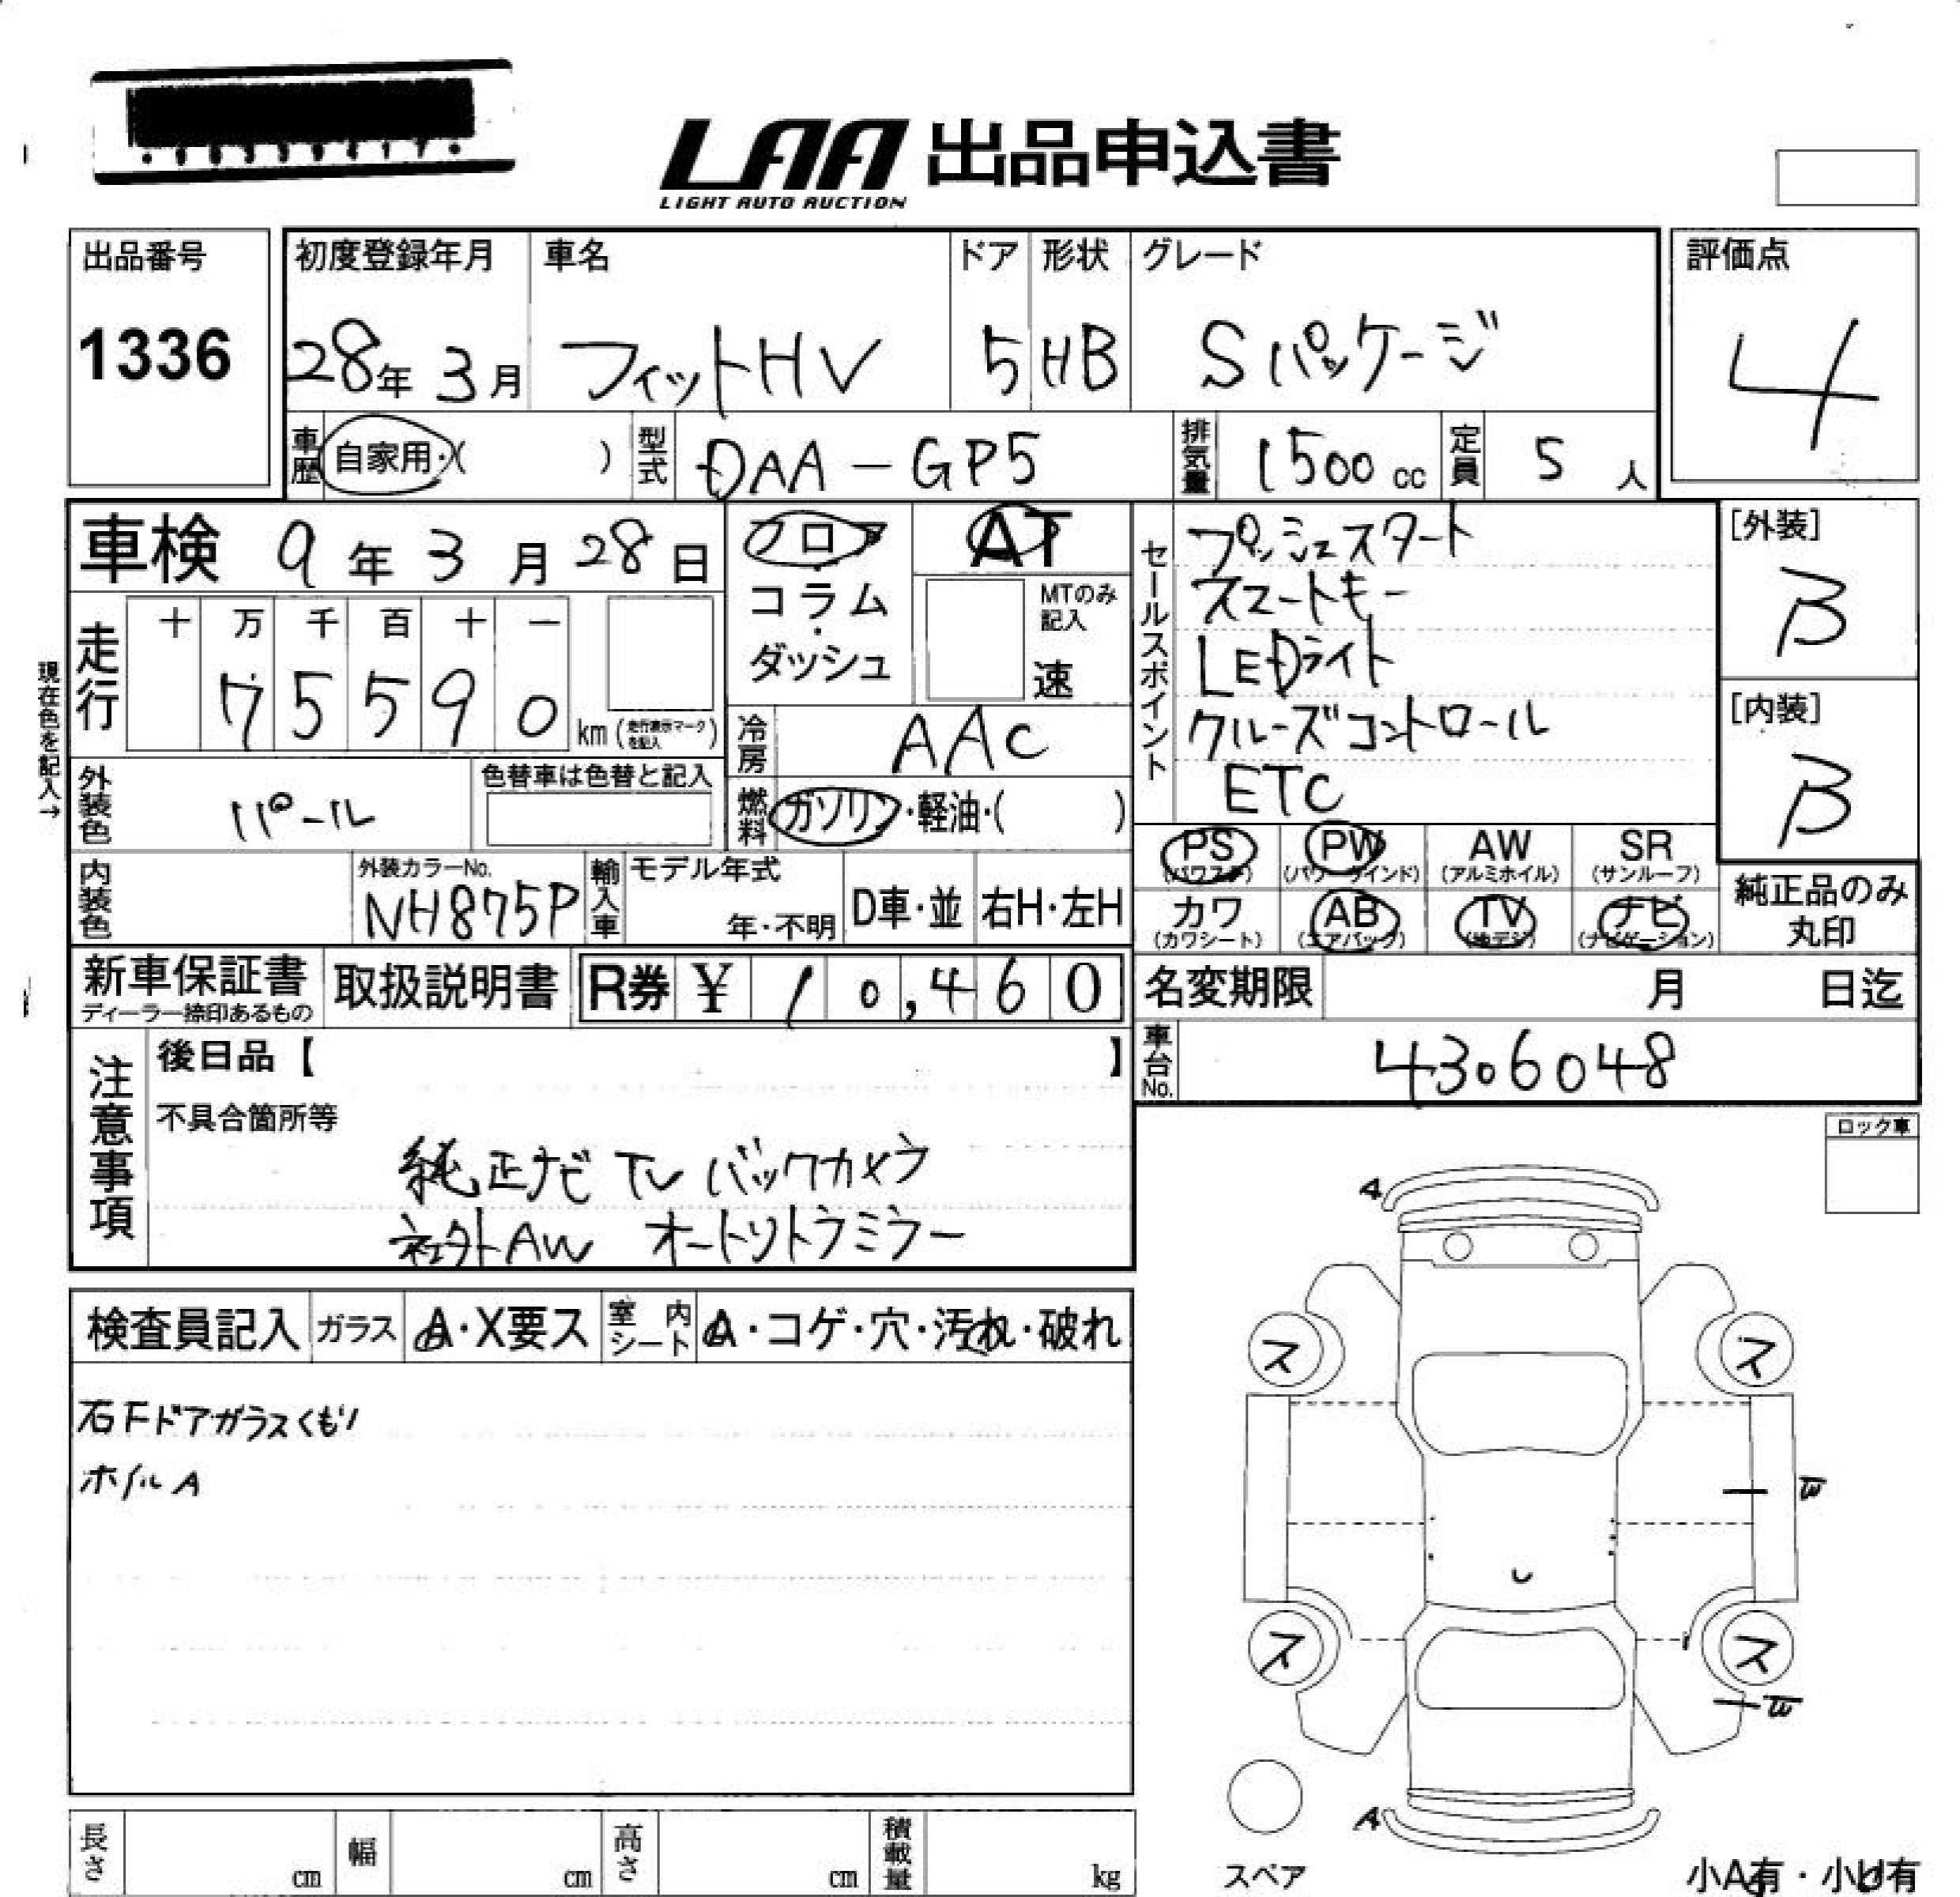 LAA 出品申込書
LIGHT AUTO AUCTION
出品番号
1336
初度登録年月 車名 ドア 形状 グレード
28年 3月 フィットHV 5 HB Sパッケージ
評価点
4
車歴 自家用・( ) 型式 DAA-GP5 排気量 1500cc 定員 5人
車検 9年 3月 28日
フロア・コラム・ダッシュ
AT
MTのみ記入
速
走行 十 万 千 百 十 一
75590 km (走行表示マークを記入)
現在色を記入→
冷房 AAC
燃料 ガソリン・軽油・( )
外装色 パール
色替車は色替と記入
内装色
外装カラーNo.
NH875P
輸入車 モデル年式
年・不明 D車・並 右H・左H
セールスポイント
プッシュスタート
スマートキー
LEDライト
クルーズコントロール
ETC
[外装]
B
[内装]
B
PS (パワステ) PW (パワーウインド) AW (アルミホイル) SR (サンルーフ)
カワ (カワシート) AB (エアバック) TV (地デジ) ナビ (ナビゲーション)
純正品のみ丸印
新車保証書
ディーラー捺印あるもの
取扱説明書 R券 ¥10,460
名変期限 月 日迄
車台No. 4306048
注意事項
後日品【 】
不具合箇所等
純正ナビ TV バックカメラ
社外AW オートリトラミラー
ロック車
検査員記入 ガラス A・X要ス 室内シート A・コゲ・穴・汚れ・破れ
右Fドアガラスくもり
ホイルA
A
ス ス
ス ス
A
スペア
小A有・小U有
長さ cm 幅 cm 高さ cm 積載量 kg